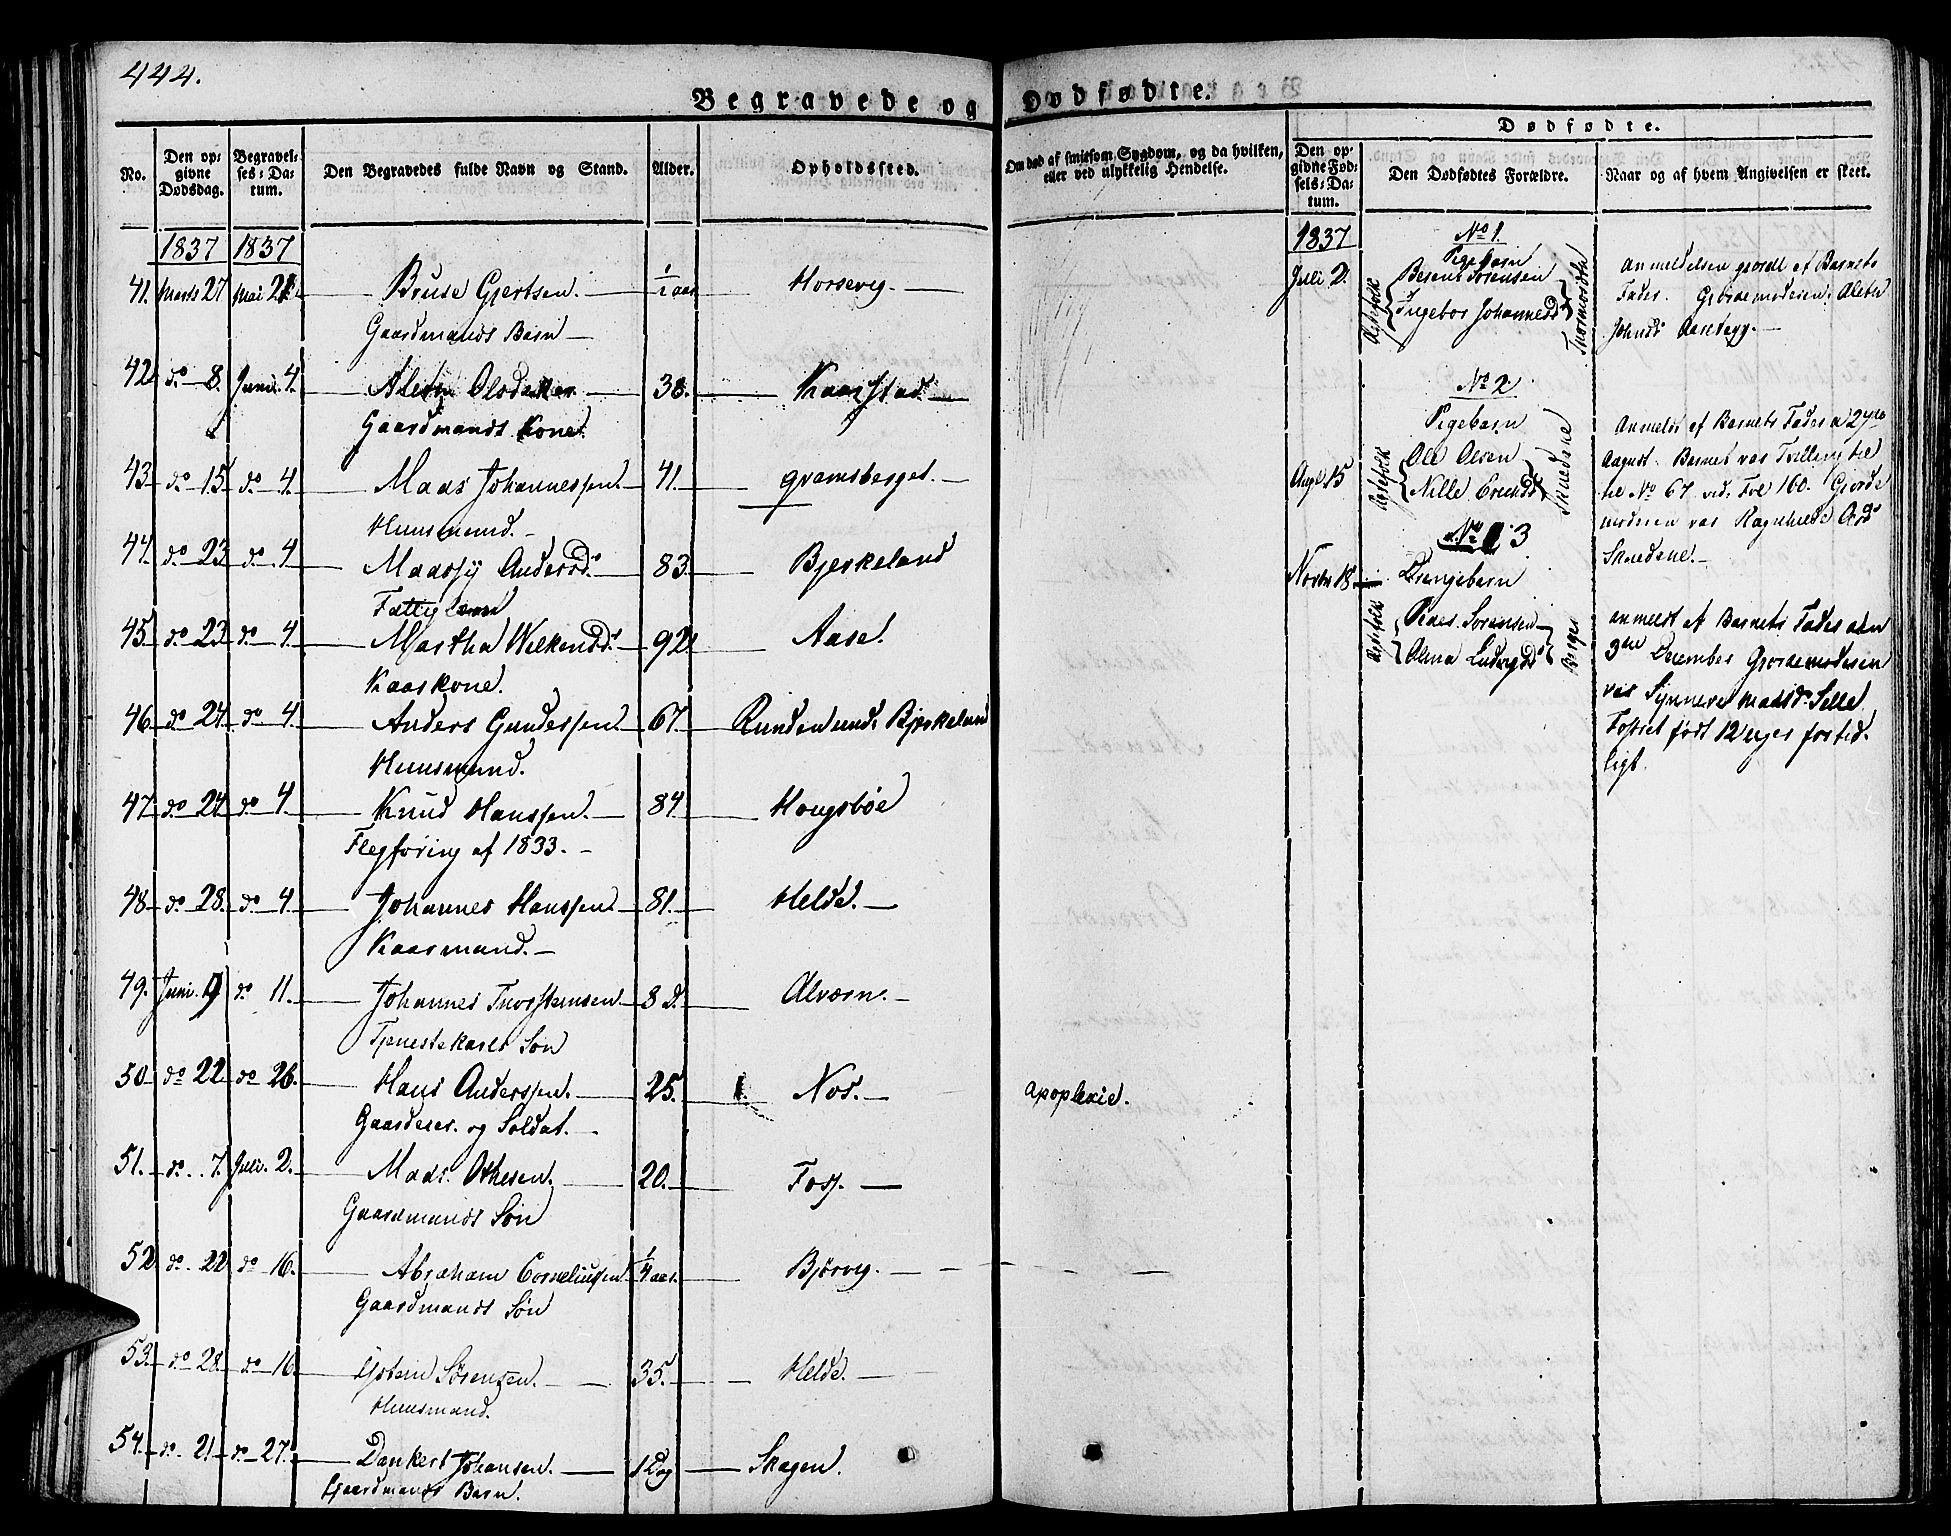 444.
Begravede og Dødfødte.
No. Den opgivne Dødsdag. Begravelses-Datum. Den Begravedes fulde Navn og Stand. Alder. Opholdssted.
1837 1837
41. Marts 27 Mai 21 Bruse Gjertsen. 1/2 aar Horsevig.
Gaardmands Barn
42 do 8. Juni 4. 38. Kaarstad.
Gaardmands Kone.
43 do 15 do 4. Maas Johannessen. 41. gramsberget.
Huusmand.
44. do 23 do 4 Maassy Andersd. 83. Bjerkeland
Fattiglem
45. do 23 do 4. Martha Wilkensd. 92. Aase.
Kaarkone.
46. do 24. do 4. Anders Gundersen. 67. Runden und. Bjerkeland
Huusmand.
47. do 24. do 4 Knud Hanssen. 84. Hougsbøe
Flegføring af 1833.
48 do 28. do 4. Johannes Hanssen. 81. Helde.
Kaarmand.
49. Juni 9 do 11. Johannes Thorsteinsen. 8 D. Alværn.
Tjenestekarls Søn
50 do 22 do 26. Hans Anderssen. 25. Nos.
og Soldat.
51. do 7. Juli 2. Mads Othesen. 20. Foss.
Gaardmands Søn
52 do 22 do 16. Abraham Corneliussen 1/4 aar. Bjørvig.
Gaardmands Søn
53. do 28. do 16 Ejstein Sørensen. 35. Helde.
Huusmand.
54. do 21 do 27. Dankert Johansen. 1 Dag Skagen.
Gaardmands Barn.
Om død af smitsom Sygdom, og da hvilken, eller ved ulykkelig Hendelse.
apoplexie.
Dødfødte.
Den opgidne Fødsels-Datum. Den Dødfødtes Forældre. Naar og af hvem Angivelsen er skeet.
1837
No 1.
Juli 2. Pigebarn
Ægtefolk Berent Sørensen
Ingebor Johannesd.
Anmeldelsen gjordt af Barnets
Fader. Gjordemoderen: Alethe
Johnsd.
No 2
Pigebarn
Augt. 15 Ægtefolk Ole Olsen
Nille Skudene
Anmeldt af Barnets Fader 27de
August. Barnet var Tvilling til
No 67 vid. Fol 160. Gjorde
moderen var Ragnhild
Skudene.
No 3
Novbr 18 Drengebarn
Ægtefolk Peder Sørensen
Alma Ludvigsd. Berge
anmeldt af Barnets Fader den
3die December Gjordemoderen
var Synneve Madsd. Selle
Fostret født 12 uger fortid-
ligt.